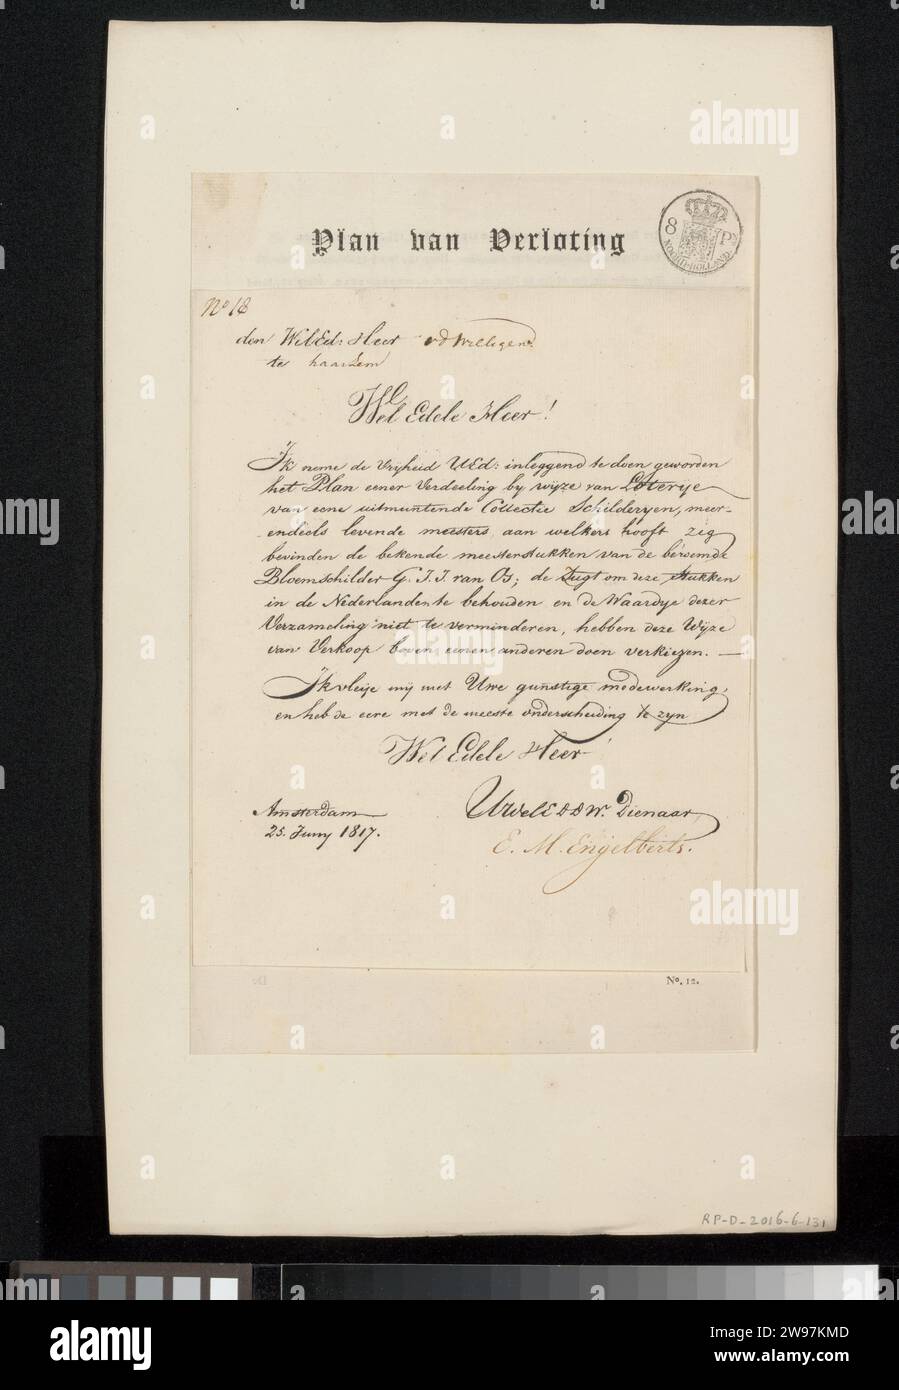 Plan van Verloting
8 P.
NOORD-HOLLAND
No 18
den WelEd: Heer vd Willigen
te haarlem
Wel Edele Heer!
Ik neme de Vryheid UEd: inleggend te doen geworden
het Plan eener Verdeeling by wijze van Loterije
van eene uitmuntende Collectie Schilderyen, meer-
endeels levende meesters, aan welkers hooft zig
bevinden de bekende meesterstukken van de beroemde
Bloemschilder G. J. J. van Os; de Zugt om deze stukken
in de Nederlanden te behouden en de Waardye dezer
Verzameling niet te verminderen, hebben deze Wijze
van Verkoop boven eenen anderen doen verkiezen. —
Ik vleije mij met Uwe gunstige medewerking,
en heb de eere met de meeste onderscheiding te zyn
Wel Edele Heer!
UWelEDDWr. Dienaar,
Amsterdam
25. Juny 1817.
E. M. Engelberts.
No. 12.
RP-D-2016-6-131
alamy
Image ID: 2W97KMD
www.alamy.com